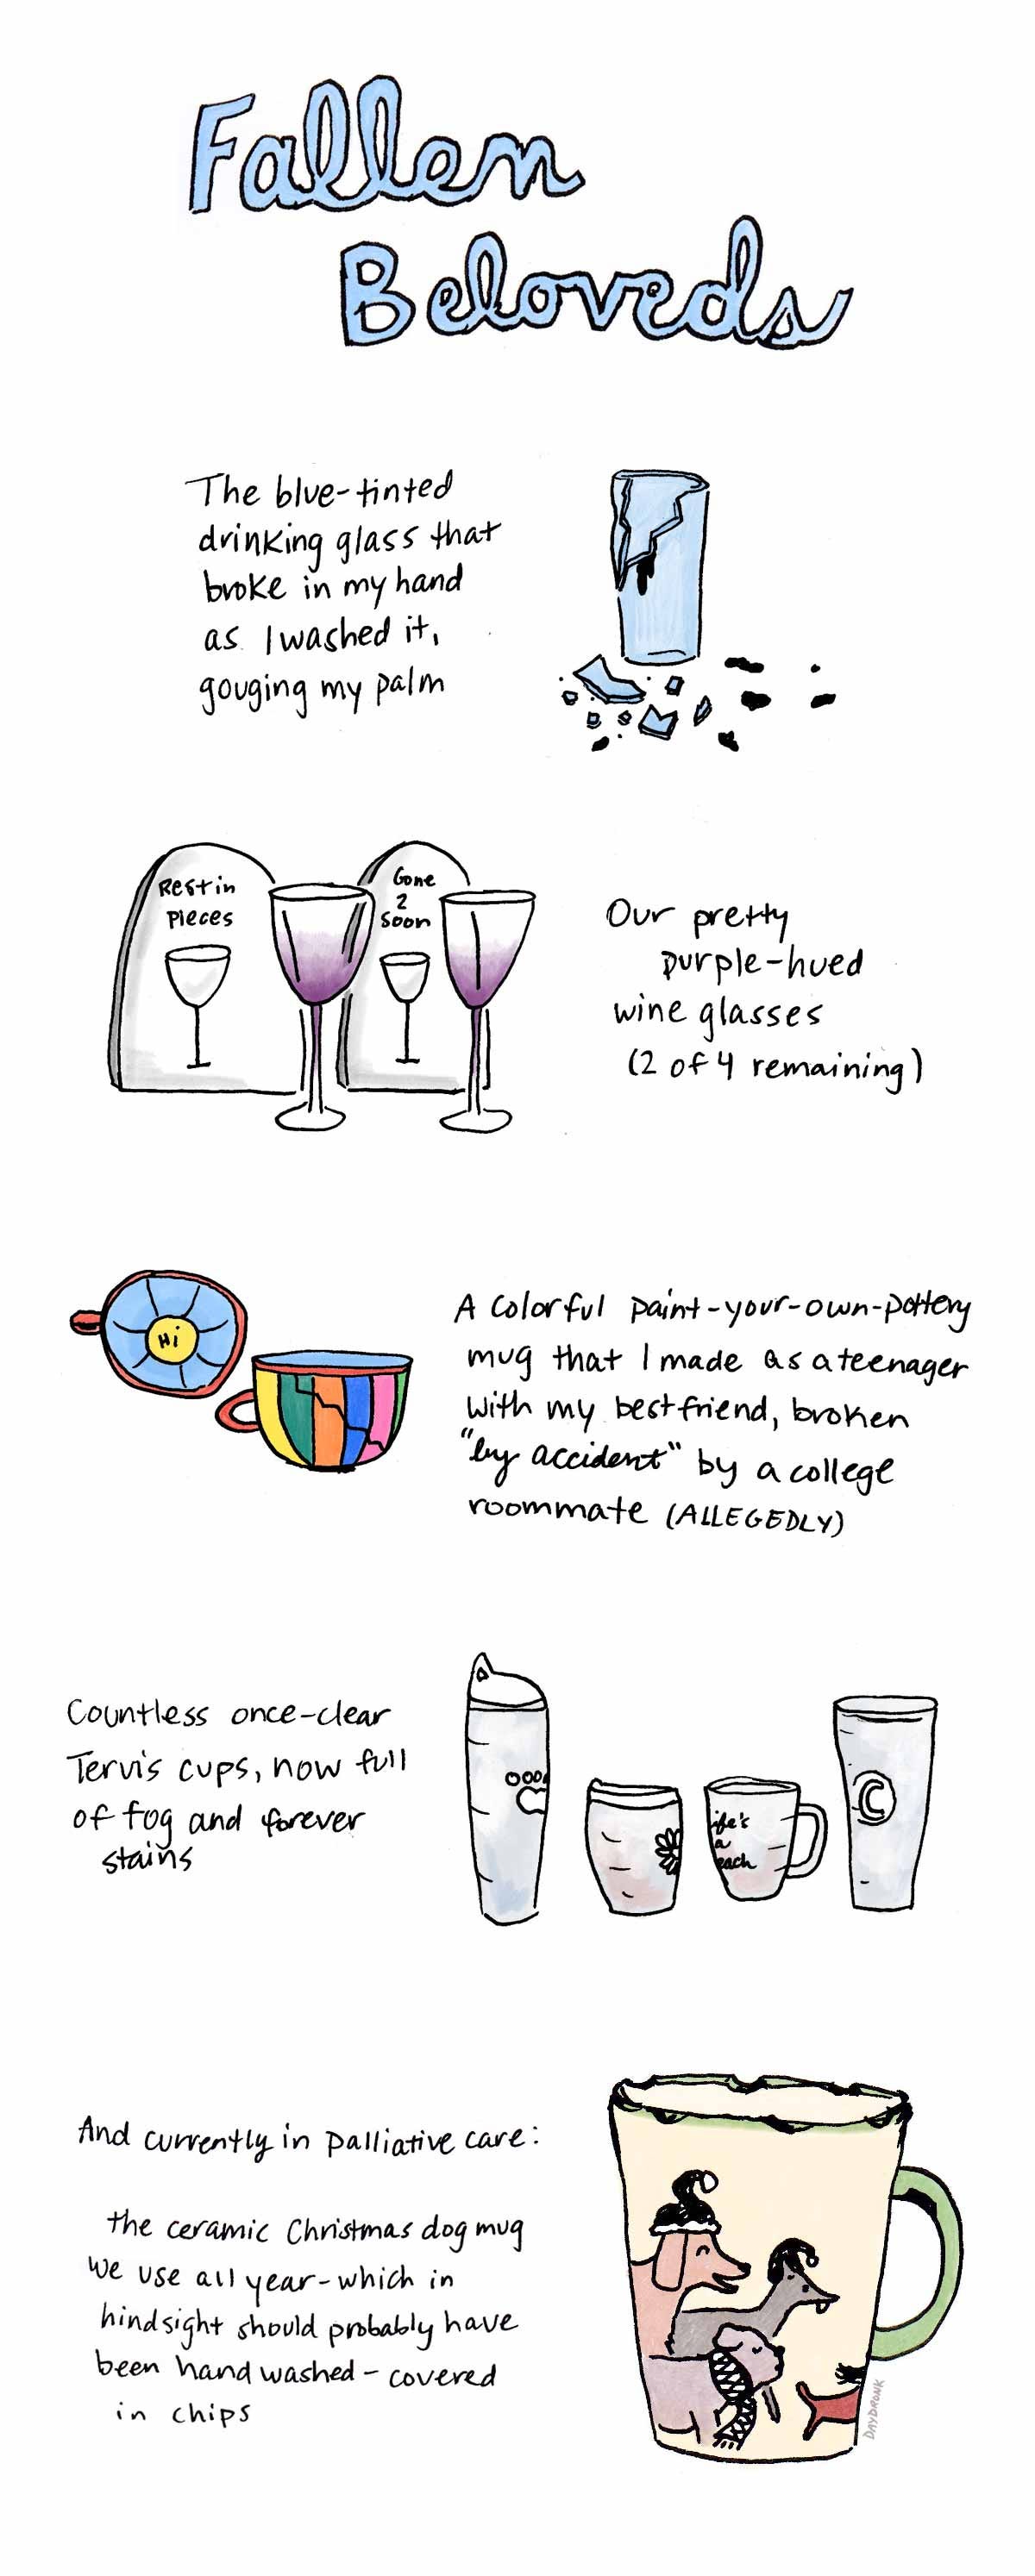 Fallen
Beloveds
The blue-tinted
drinking glass that
broke in my hand
as I washed it,
gouging my palm
Rest in
Pieces
Gone
2
Soon
Our pretty
purple-hued
wine glasses
(2 of 4 remaining)
Hi
A colorful paint-your-own-pottery
mug that I made as a teenager
with my best friend, broken
"by accident" by a college
roommate (ALLEGEDLY)
Countless once-clear
Tervis cups, now full
of fog and forever
stains
ife's
a
each
C
And currently in palliative care:
the ceramic Christmas dog mug
we use all year-which in
hindsight should probably have
been hand washed - covered
in chips
DAYDRONK